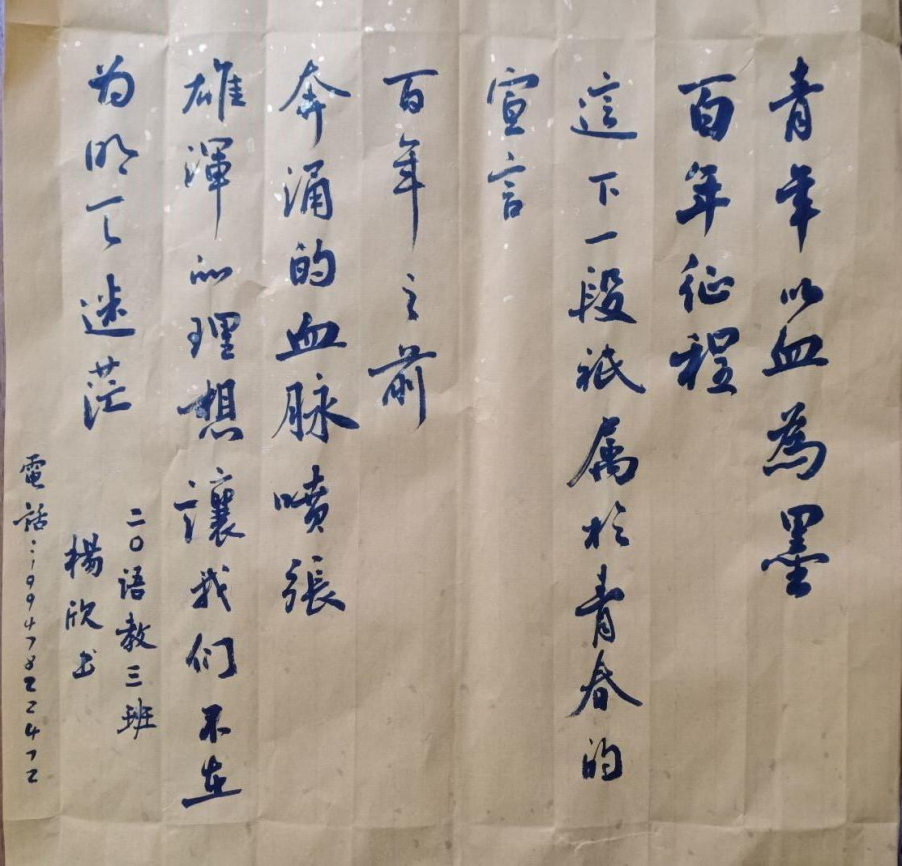 青年以血為墨
百年征程
這下一段祇属於青春的
宣言
百年之前
奔涌的血脉噴張
雄渾的理想讓我们不在
为明天迷茫
二〇语教三班
楊欣书
電話:19947822472